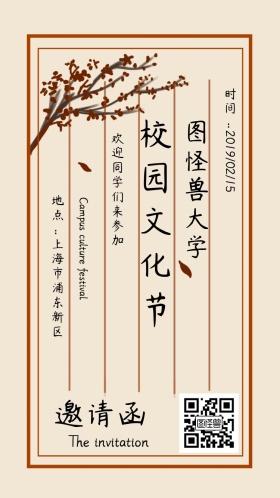 时间：2019/02/15
图怪兽大学
校园文化节
欢迎同学们来参加
Campus culture festival
地点：上海市浦东新区
邀请函
The invitation
图怪兽